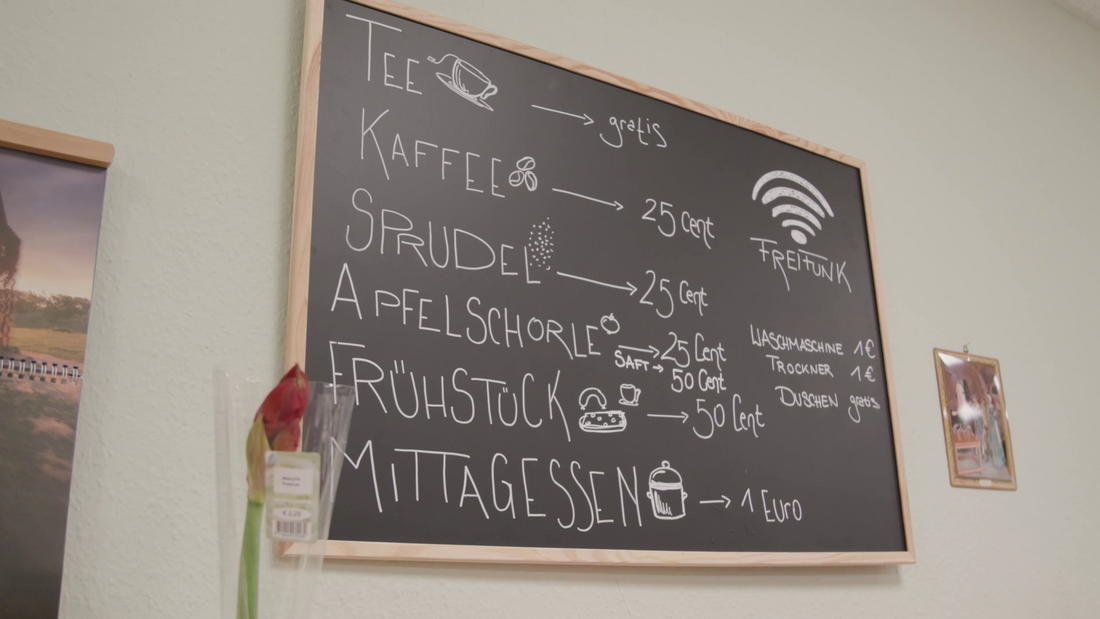 TEE → gratis
KAFFEE → 25 Cent
SPRUDEL → 25 Cent
APFELSCHORLE → 25 Cent
SAFT → 50 Cent
FRÜHSTÜCK → 50 Cent
MITTAGESSEN → 1 Euro
FREIFUNK
WASCHMASCHINE 1€
TROCKNER 1€
DUSCHEN gratis
€ 2.20